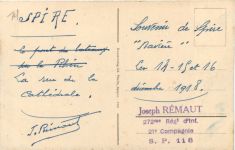 SPIRE.
le pont de bateaux
sur le Rhin
La rue de la
Cathédrale.
J. Rémaut
Souvenir de Spire
"Bavière"
Ces 14-15 et 16
décembre 1918.
Joseph RÉMAUT
272me Régt d'Inf.
21e Compagnie
S. P. 118